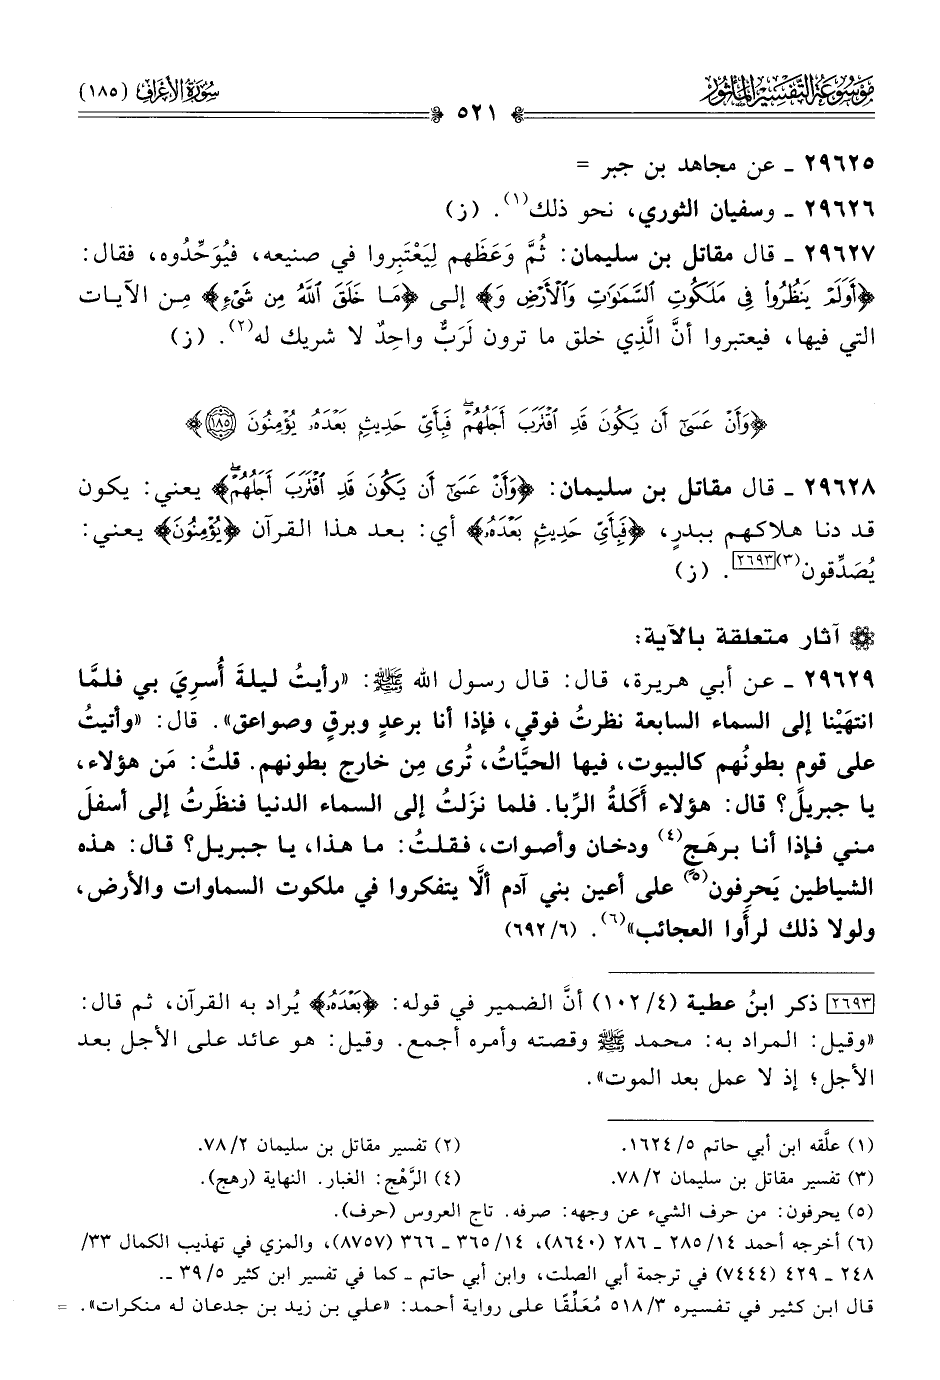 مَوْسُوعَةُ التَّفْسِيرِ المَأْثُورِ
سُورَةُ الأَعْرَافِ (١٨٥)
٥٢١
٢٩٦٢٥ ـ عن مجاهد بن جبر =
٢٩٦٢٦ ـ وسفيان الثوري، نحو ذلك(١). (ز)
٢٩٦٢٧ ـ قال مقاتل بن سليمان: ثُمَّ وَعَظَهم لِيَعْتَبِروا في صنيعه، فيُوَحِّدُوه، فقال:
﴿أَوَلَمْ يَنظُرُوا۟ فِى مَلَكُوتِ ٱلسَّمَٰوَٰتِ وَٱلْأَرْضِ وَ﴾ إلى ﴿مَا خَلَقَ ٱللَّهُ مِن شَىْءٍ﴾ مِن الآيات
التي فيها، فيعتبروا أنَّ الَّذِي خلق ما ترون لَرَبٌّ واحِدٌ لا شريك له(٢). (ز)
﴿وَأَنْ عَسَىٰٓ أَن يَكُونَ قَدِ ٱقْتَرَبَ أَجَلُهُمْ ۖ فَبِأَىِّ حَدِيثٍۭ بَعْدَهُۥ يُؤْمِنُونَ ١٨٥﴾
٢٩٦٢٨ ـ قال مقاتل بن سليمان: ﴿وَأَنْ عَسَىٰٓ أَن يَكُونَ قَدِ ٱقْتَرَبَ أَجَلُهُمْ ۖ﴾ يعني: يكون
قد دنا هلاكهم ببدرٍ، ﴿فَبِأَىِّ حَدِيثٍۭ بَعْدَهُۥ﴾ أي: بعد هذا القرآن ﴿يُؤْمِنُونَ﴾ يعني:
يُصَدِّقون(٣)[٢٦٩٣]. (ز)
آثار متعلقة بالآية:
٢٩٦٢٩ ـ عن أبي هريرة، قال: قال رسول الله ﷺ: «رأيتُ ليلةَ أُسرِيَ بي فلمَّا
انتهَيْنا إلى السماء السابعة نظرتُ فوقي، فإذا أنا برعدٍ وبرقٍ وصواعق». قال: «وأتيتُ
على قومٍ بطونُهم كالبيوت، فيها الحيَّاتُ، تُرى مِن خارج بطونهم. قلتُ: مَن هؤلاء،
يا جبريلُ؟ قال: هؤلاء أَكَلةُ الرِّبا. فلما نزَلتُ إلى السماء الدنيا فنظَرتُ إلى أسفلَ
مني فإذا أنا برهَجٍ(٤) ودخان وأصوات، فقلتُ: ما هذا، يا جبريل؟ قال: هذه
الشياطين يَحرِفون(٥) على أعين بني آدم ألَّا يتفكروا في ملكوت السماوات والأرض،
ولولا ذلك لرأَوا العجائب»(٦). (٦/ ٦٩٢)
[٢٦٩٣] ذكر ابنُ عطية (٤/ ١٠٢) أنَّ الضمير في قوله: ﴿بَعْدَهُۥ﴾ يُراد به القرآن، ثم قال:
«وقيل: المراد به: محمد ﷺ وقصته وأمره أجمع. وقيل: هو عائد على الأجل بعد
الأجل؛ إذ لا عمل بعد الموت».
(١) علَّقه ابن أبي حاتم ٥/ ١٦٢٤. (٢) تفسير مقاتل بن سليمان ٢/ ٧٨.
(٣) تفسير مقاتل بن سليمان ٢/ ٧٨. (٤) الرَّهْج: الغبار. النهاية (رهج).
(٥) يحرفون: من حرف الشيء عن وجهه: صرفه. تاج العروس (حرف).
(٦) أخرجه أحمد ١٤/ ٢٨٥ ـ ٢٨٦ (٨٦٤٠)، ١٤/ ٣٦٥ ـ ٣٦٦ (٨٧٥٧)، والمزي في تهذيب الكمال ٣٣/
٢٤٨ ـ ٤٢٩ (٧٤٤٤) في ترجمة أبي الصلت، وابن أبي حاتم ـ كما في تفسير ابن كثير ٥/ ٣٩ ـ.
قال ابن كثير في تفسيره ٣/ ٥١٨ مُعَلِّقًا على رواية أحمد: «علي بن زيد بن جدعان له منكرات». =